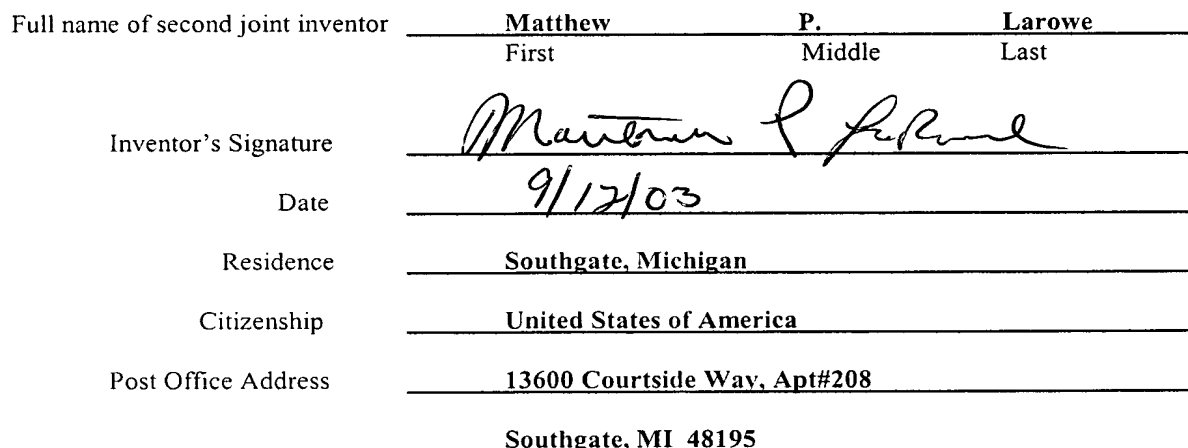 Full name of second joint inventor Matthew P. Larowe
First Middle Last
Inventor's Signature Matthew P LaRowe
Date 9/12/03
Residence Southgate, Michigan
Citizenship United States of America
Post Office Address 13600 Courtside Way, Apt#208
Southgate, MI 48195